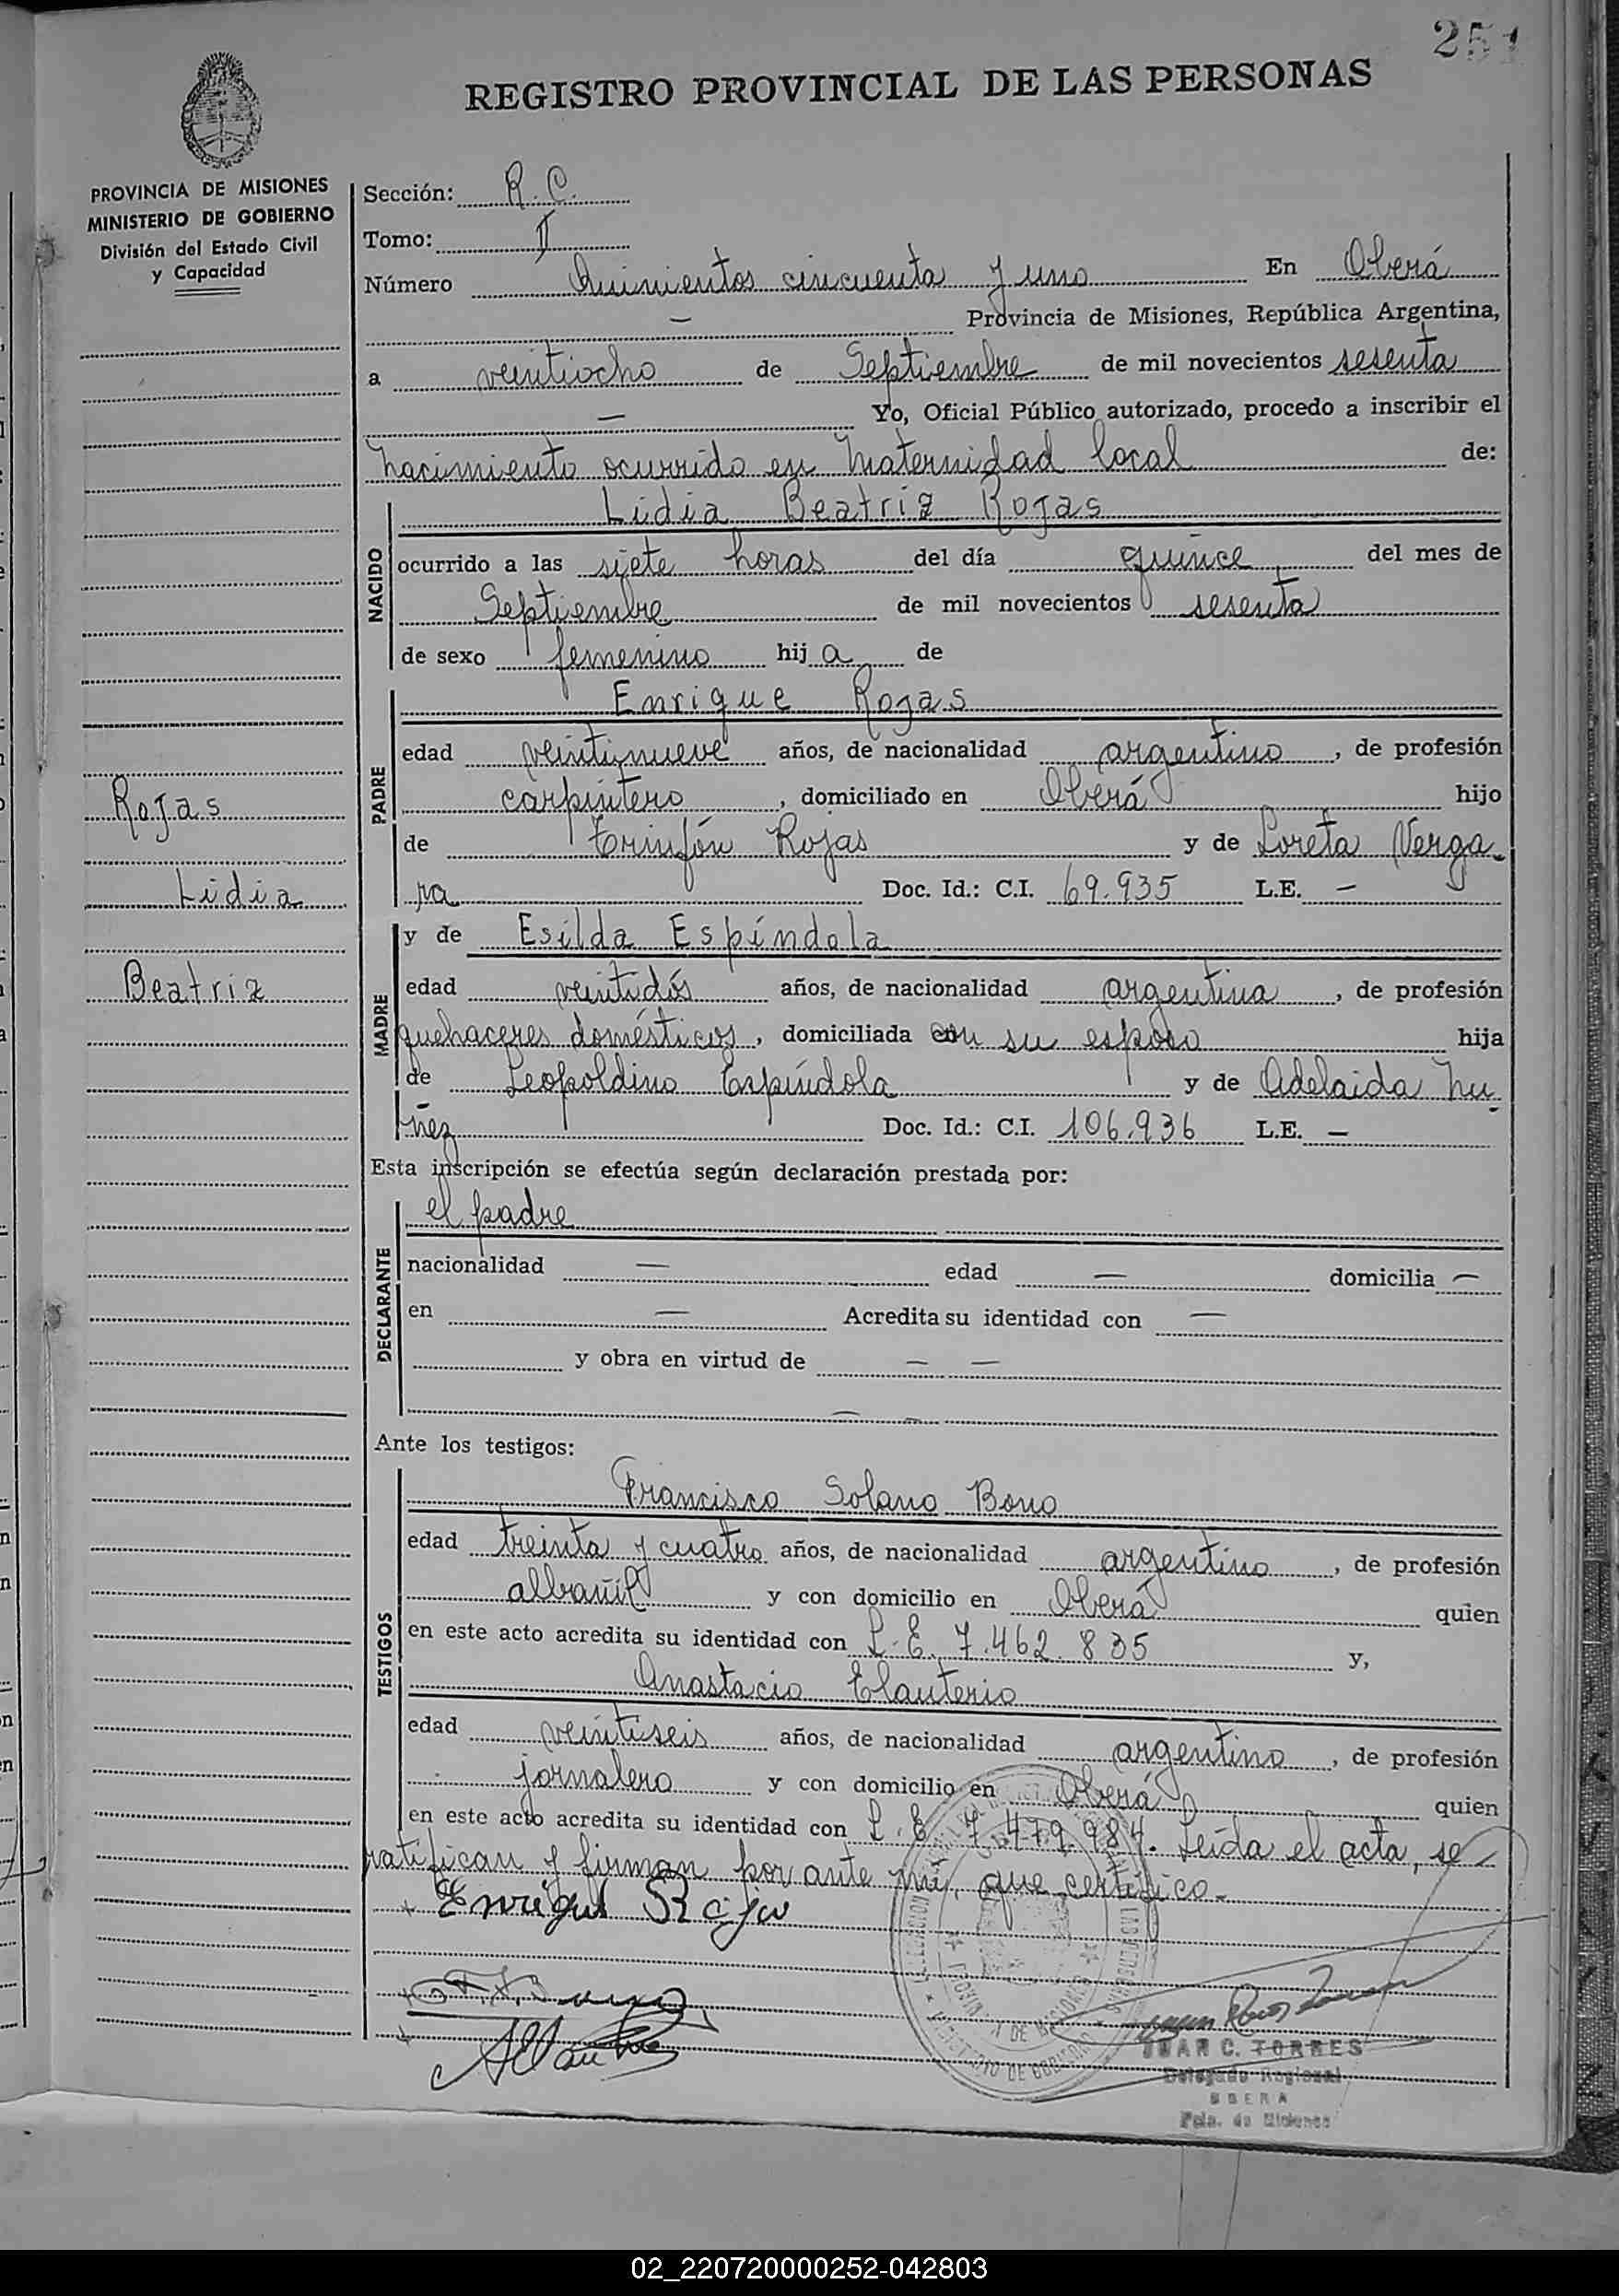 251
REGISTRO PROVINCIAL DE LAS PERSONAS
PROVINCIA DE MISIONES
MINISTERIO DE GOBIERNO
División del Estado Civil
y Capacidad
Sección: R. C.
Tomo: II
Número Quinientos cincuenta y uno En Oberá
— Provincia de Misiones, República Argentina,
a veintiocho de Septiembre de mil novecientos sesenta
— Yo, Oficial Público autorizado, procedo a inscribir el
nacimiento ocurrido en Maternidad local de:
NACIDO
Lidia Beatriz Rojas
ocurrido a las siete horas del día quince del mes de
Septiembre de mil novecientos sesenta
de sexo femenino hij a de
PADRE
Enrique Rojas
edad veintinueve años, de nacionalidad argentino, de profesión
carpintero, domiciliado en Oberá hijo
de Rojas y de Loreta Verga-
ra Doc. Id.: C.I. 69.935 L.E. —
Rojas
Lidia
Beatriz
MADRE
y de Esilda Espíndola
edad veintidós años, de nacionalidad argentina, de profesión
quehaceres domésticos, domiciliada con su esposo hija
de Leopoldino Espíndola y de Adelaida Nu-
ñez Doc. Id.: C.I. 106.936 L.E. —
Esta inscripción se efectúa según declaración prestada por:
DECLARANTE
el padre
nacionalidad — edad — domicilia —
en — Acredita su identidad con —
y obra en virtud de — —
— —
Ante los testigos:
TESTIGOS
Francisco Solano Bono
edad treinta y cuatro años, de nacionalidad argentino, de profesión
albañil y con domicilio en Oberá quien
en este acto acredita su identidad con L. E. 7.462.835 y,
Anastacio Elauterio
edad veintiseis años, de nacionalidad argentino, de profesión
jornalero y con domicilio en Oberá quien
en este acto acredita su identidad con L. E. 7.479.984. Leída el acta, se
ratifican y firman por ante mí, que certifico.
Enrique Rojas
JUAN C. TORRES
Delegado Regional
OBERA
Pcia. de Misiones
02_220720000252-042803